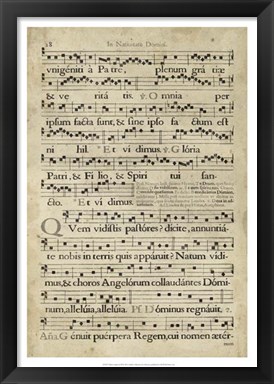 28 In Nativitate Domini.
unigéniti à Patre, plenum grátiæ
& veritátis. ℣. Omnia per
ipsum facta sunt, & sine ipso factum est
nihil. * Et vidimus. ℣. Glória
Patri, & Filio, & Spiritui san-
cto. Et vidimus.
QUem vidístis pastóres? dícite, annuntiá-
te nobis in terris quis appáruit? Natum vídi-
mus, & choros Angelórum collaudántes Dómi-
num, allelúia, allelúia. Ps. Dóminus regnávit.
Aña. Génuit puérpera Regem, cui nomen ætér-